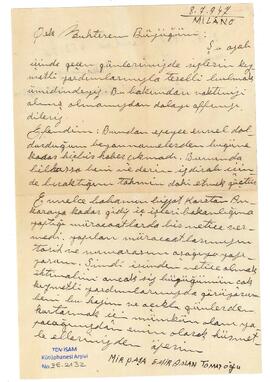 8.7.942
MİLÂNO
Pek Muhterem Büyüğüm:
Şu acıklı
içinde geçen günlerimizde sizlerin kıy-
metli yardımlarınızla teselli bulmak
ümidindeyiz. Bu bakımdan vaktinizi
almış olmamızdan dolayı affınızı
dileriz
Efendim: Bundan epeyce evvel dol-
durduğum beyannamelerden bugüne
kadar hiçbir haber çıkmadı. Bu
bilhassa beni ve derin ızdırab için-
de bıraktığını tahmin
Evvelce babamın bizzat
karaya kadar gidip iç işleri bakanlığına
yaptığı müracaatlarda bir netice ver-
medi. yapılan müracaatlarımızın
tarih ve numarasını aşağıya yazı-
yorum. Şimdi sizden netice almak
ihtimalini ancak siz büyüğümüzün çok
kıymetli yardımlarınızla görüyorum
beni bu hazin ve acıklı günlerden
kurtarmak için mümkün olanı ya-
pacağınızdan emin olarak hürmet
le ellerinizden öperim
MİRPAŞA EMİRASLAN TOMATOĞU
TDV İSAM
Kütüphanesi Arşivi
No